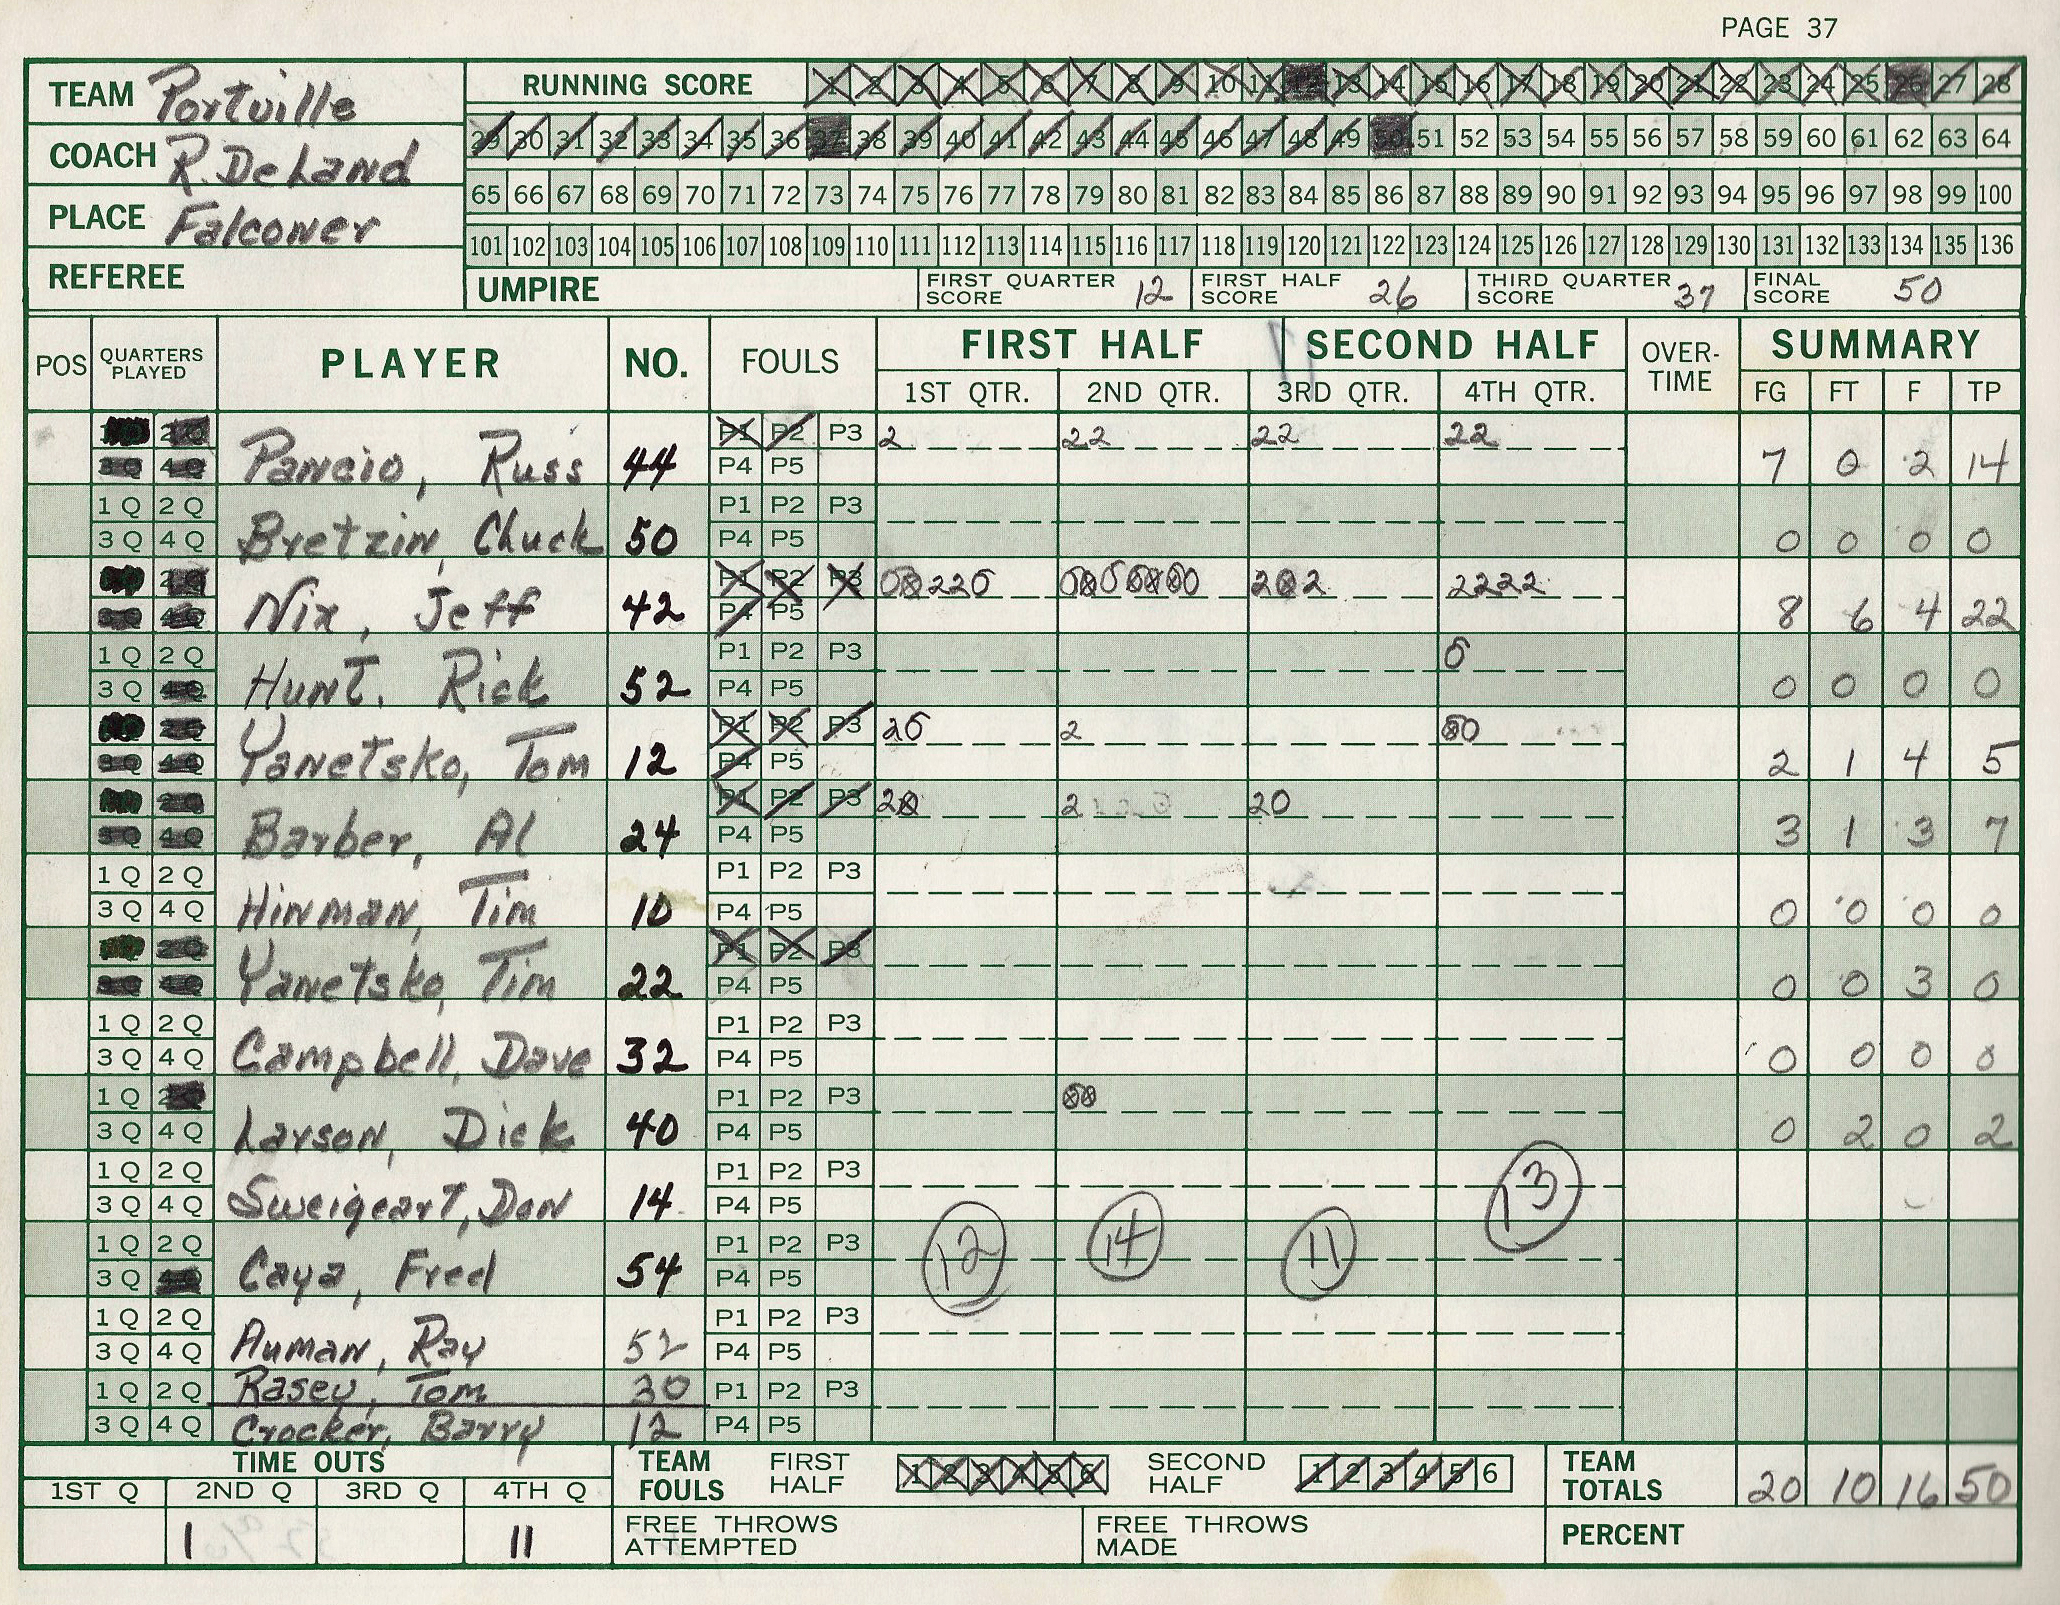 PAGE 37
TEAM Portville
COACH R. DeLand
PLACE Falconer
REFEREE
RUNNING SCORE 1 2 3 4 5 6 7 8 9 10 11 12 13 14 15 16 17 18 19 20 21 22 23 24 25 26 27 28
29 30 31 32 33 34 35 36 37 38 39 40 41 42 43 44 45 46 47 48 49 50 51 52 53 54 55 56 57 58 59 60 61 62 63 64
65 66 67 68 69 70 71 72 73 74 75 76 77 78 79 80 81 82 83 84 85 86 87 88 89 90 91 92 93 94 95 96 97 98 99 100
101 102 103 104 105 106 107 108 109 110 111 112 113 114 115 116 117 118 119 120 121 122 123 124 125 126 127 128 129 130 131 132 133 134 135 136
UMPIRE FIRST QUARTER SCORE 12 FIRST HALF SCORE 26 THIRD QUARTER SCORE 37 FINAL SCORE 50
POS QUARTERS PLAYED PLAYER NO. FOULS FIRST HALF SECOND HALF OVER-TIME SUMMARY
1ST QTR. 2ND QTR. 3RD QTR. 4TH QTR. FG FT F TP
P1 P2 P3 2 22 22 22
3Q 4Q Pancio, Russ 44 P4 P5 7 0 2 14
1Q 2Q P1 P2 P3
3Q 4Q Bretzin, Chuck 50 P4 P5 0 0 0 0
P1 P2 P3 2222
Nix, Jeff 42 P4 P5 8 6 4 22
1Q 2Q P1 P2 P3
3Q 4Q Hunt, Rick 52 P4 P5 0 0 0 0
P1 P2 P3 2
3Q 4Q Yanetsko, Tom 12 P4 P5 2 1 4 5
P1 P2 P3 2 20
3Q 4Q Barber, Al 24 P4 P5 3 1 3 7
1Q 2Q P1 P2 P3
3Q 4Q Hinman, Tim 10 P4 P5 0 0 0 0
P1 P2 P3
3Q 4Q Yanetsko, Tim 22 P4 P5 0 0 3 0
1Q 2Q P1 P2 P3
3Q 4Q Campbell, Dave 32 P4 P5 0 0 0 0
1Q 2Q P1 P2 P3
3Q 4Q Larson, Dick 40 P4 P5 0 2 0 2
1Q 2Q P1 P2 P3
3Q 4Q Sweigeart, Don 14 P4 P5 13
1Q 2Q P1 P2 P3 12 14 11
3Q 4Q Caya, Fred 54 P4 P5
1Q 2Q P1 P2 P3
3Q 4Q Auman, Ray 52 P4 P5
1Q 2Q Rasey, Tom 30 P1 P2 P3
3Q 4Q Crocker, Barry 12 P4 P5
TIME OUTS TEAM FOULS FIRST HALF 1 2 3 4 5 6 SECOND HALF 1 2 3 4 5 6 TEAM TOTALS 20 10 16 50
1ST Q 2ND Q 3RD Q 4TH Q
I II FREE THROWS ATTEMPTED FREE THROWS MADE PERCENT